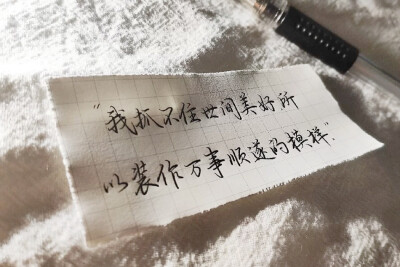 “我抓不住世间美好所
以装作万事顺遂的模样”